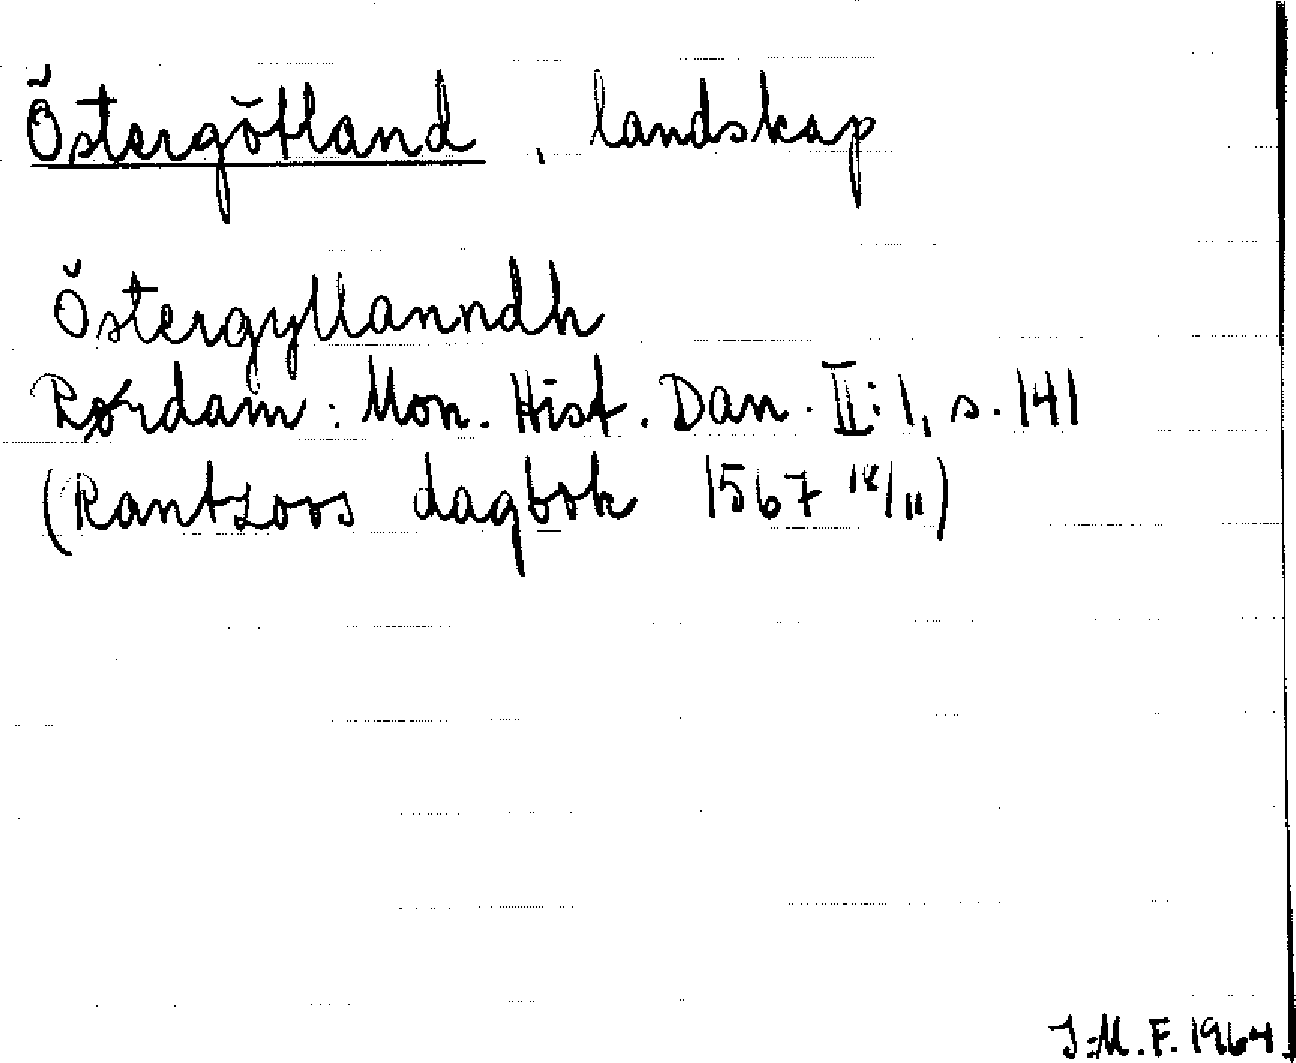 Östergötland, landskap
Östergyllanndh
Rørdam: Mon. Hist. Dan. II:1, s. 141
(Rantzoos dagbok 1567 18/11)
I:M.F. 1964